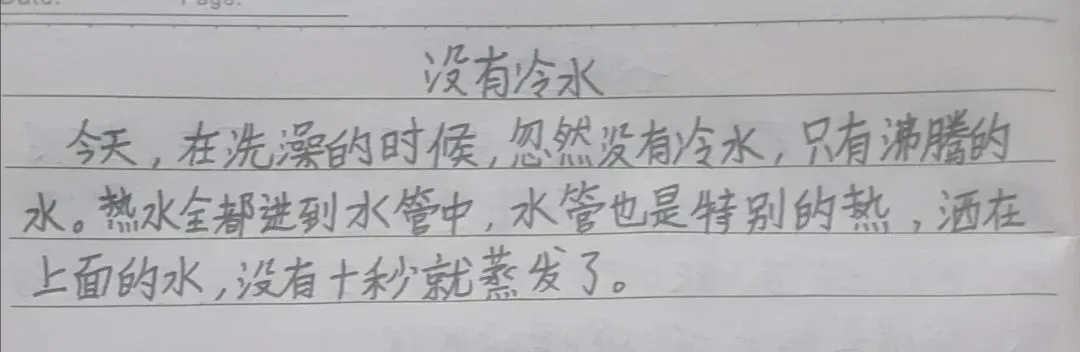 没有冷水
今天，在洗澡的时候，忽然没有冷水，只有沸腾的
水。热水全都进到水管中，水管也是特别的热，洒在
上面的水，没有十秒就蒸发了。